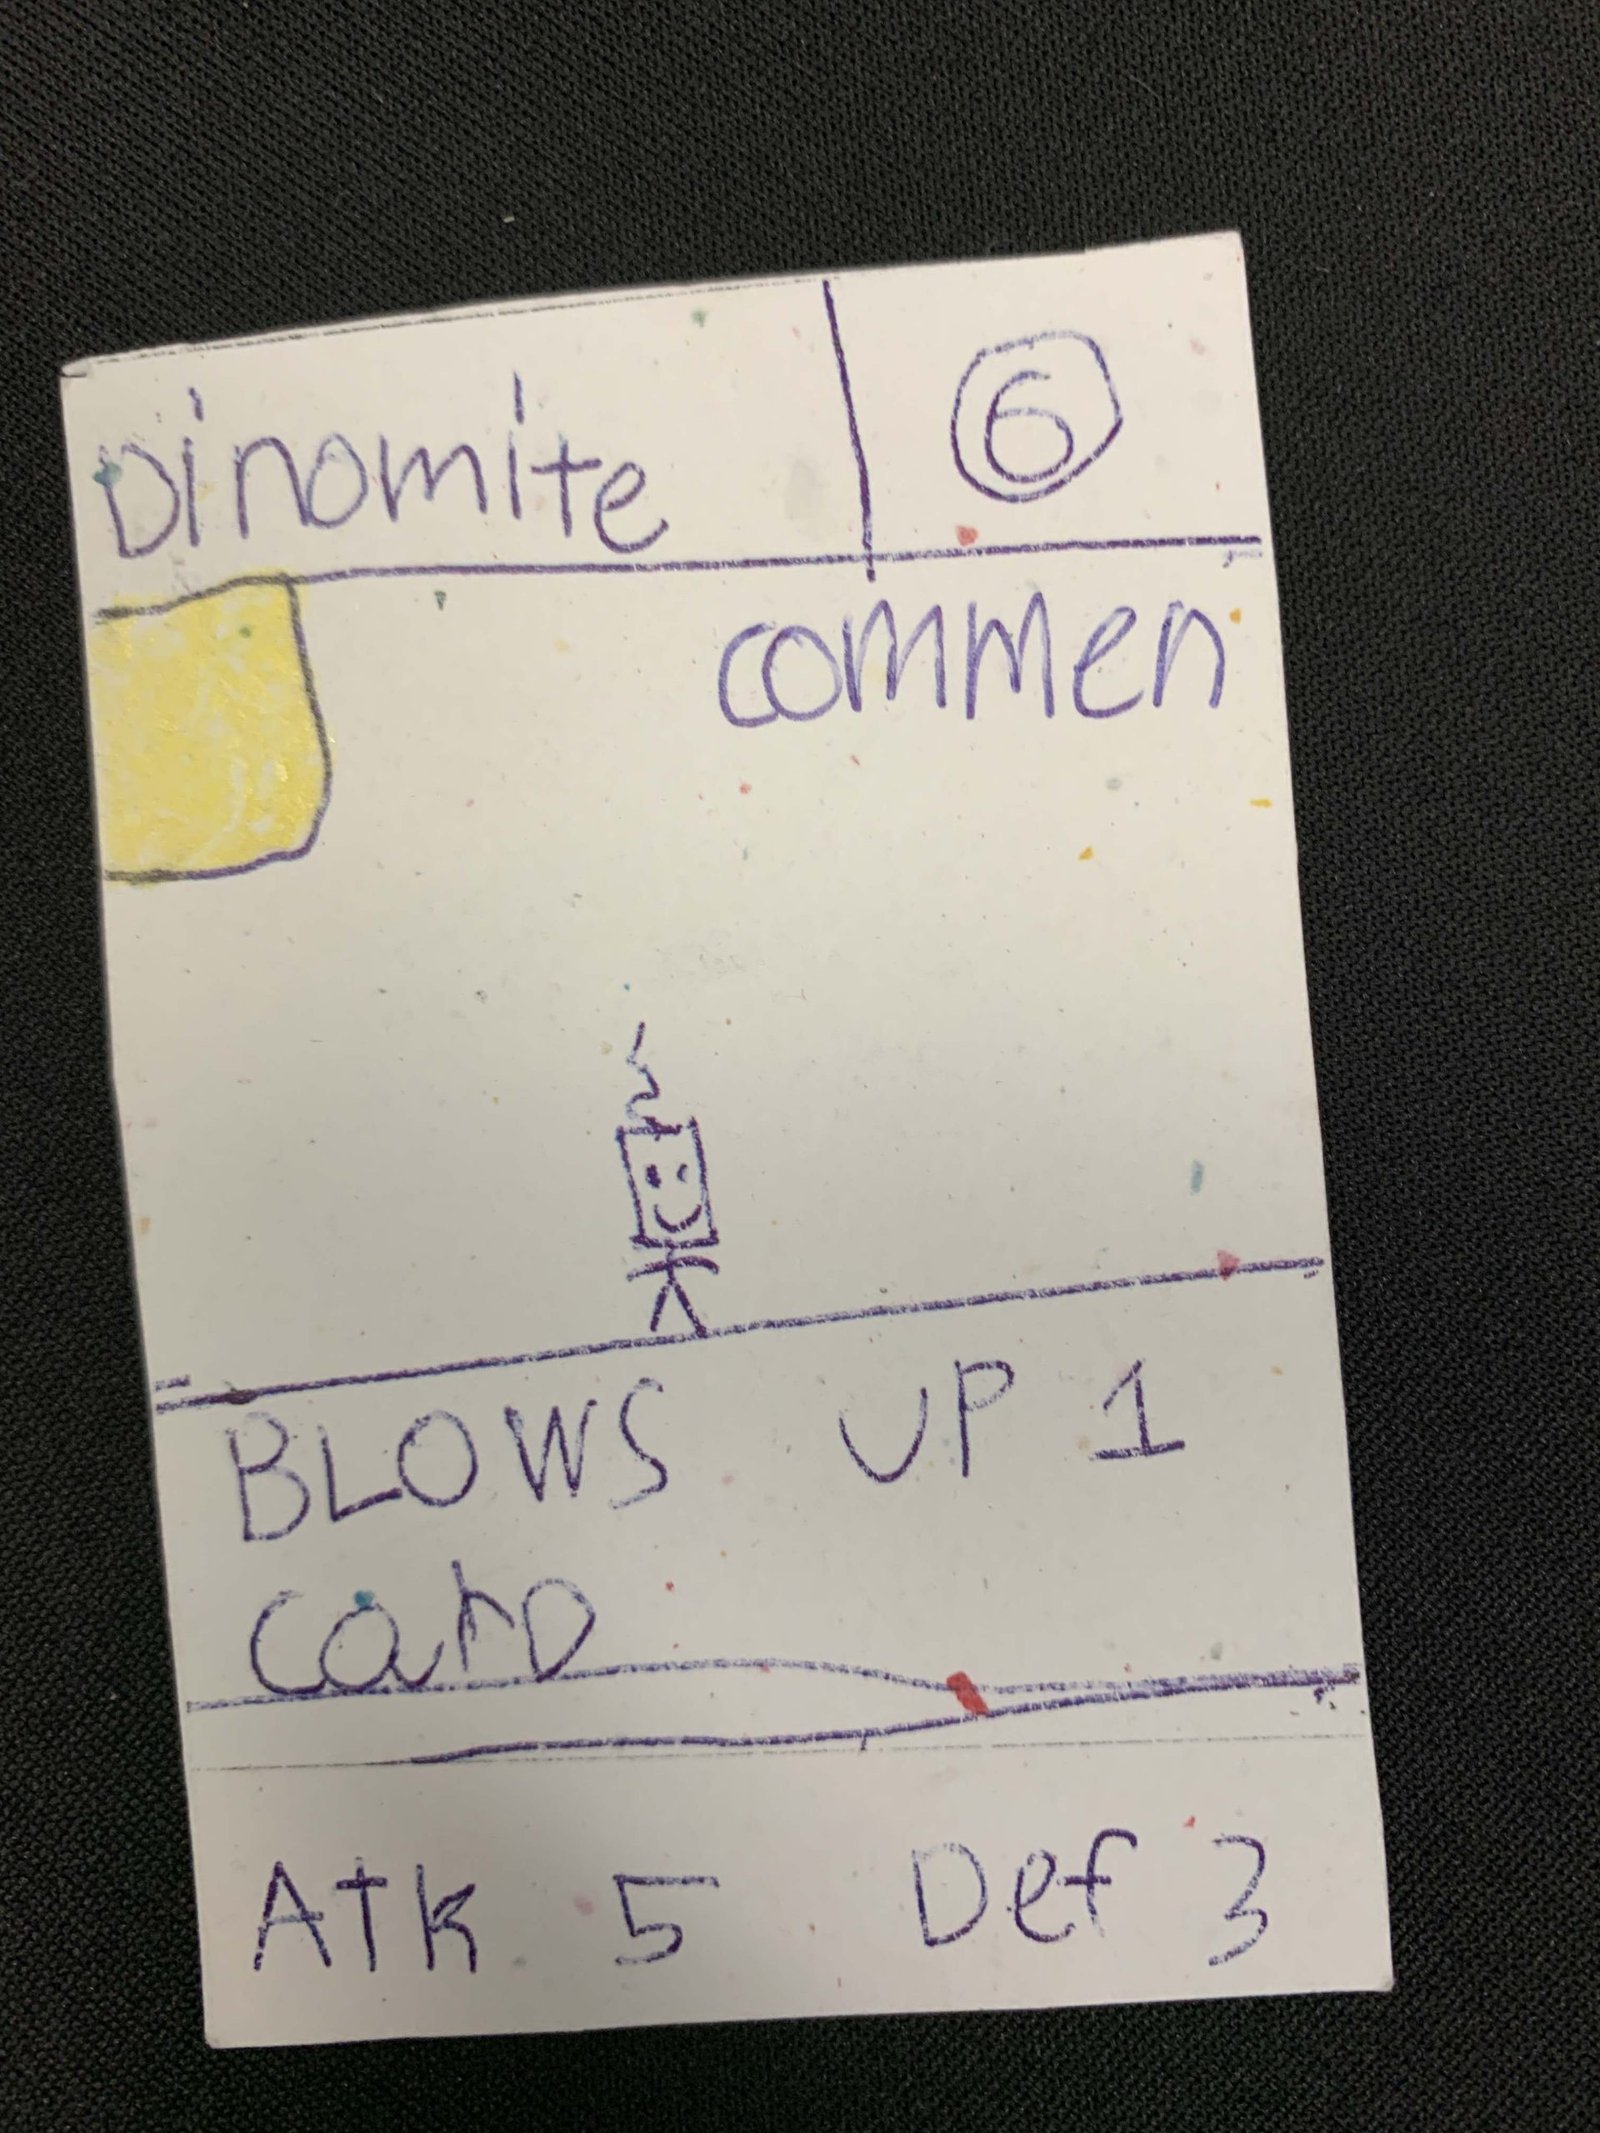 Dinomite 6
commen
BLOWS UP 1
CarD
Atk 5 Def 3